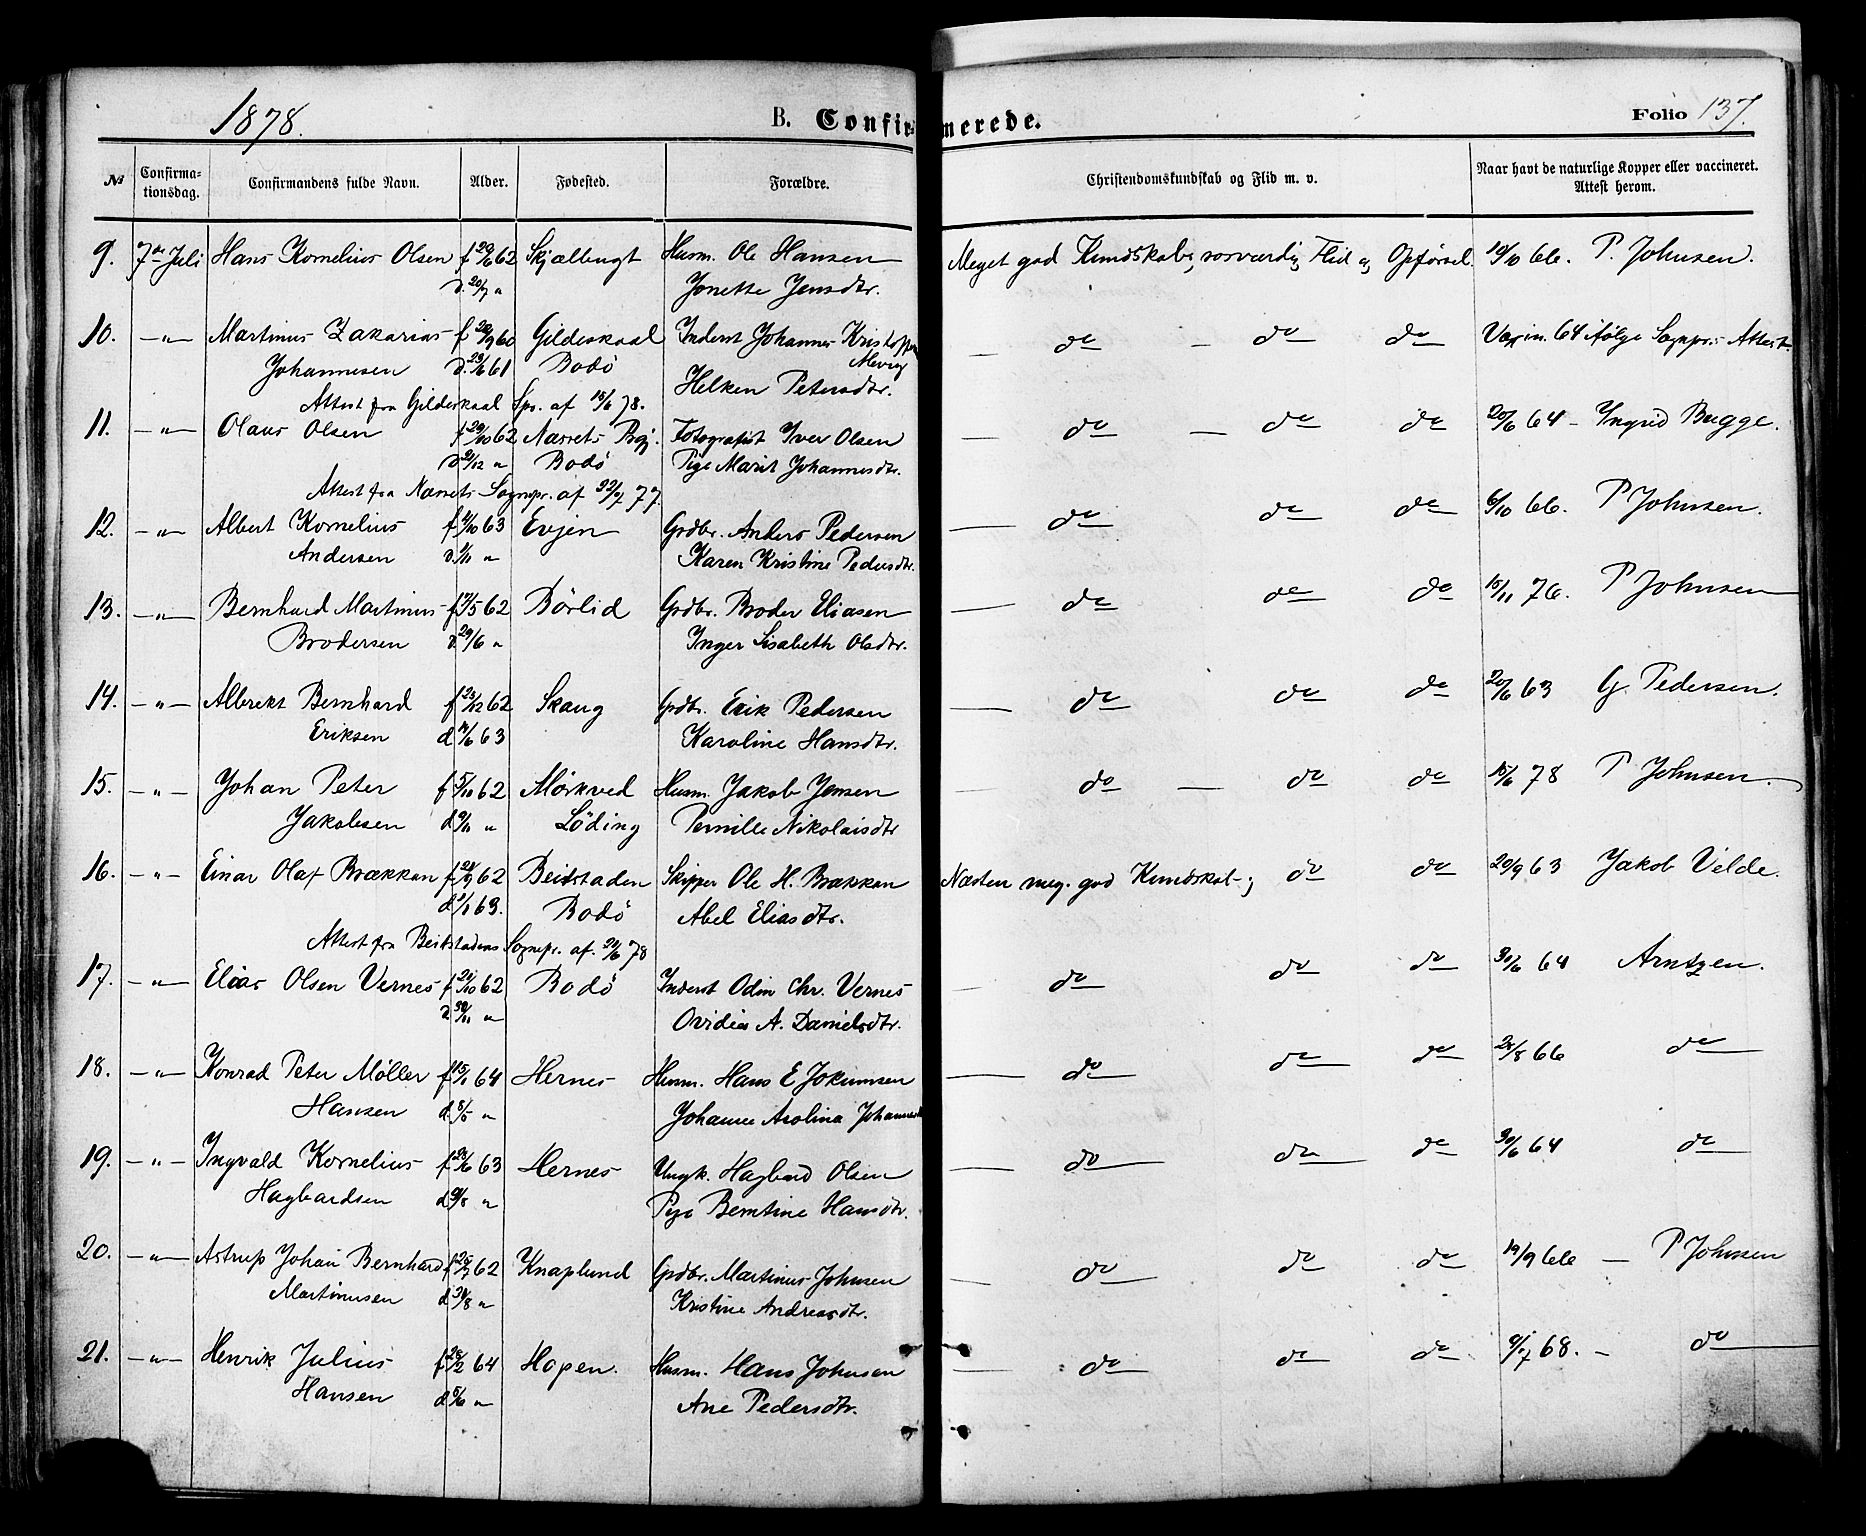 1878. B. Confirmerede. Folio 137.
№ Confirmationsdag. Confirmandens fulde Navn. Alder. Fødested. Forældre. Christendomskundskab og Flid m. v. Naar havt de naturlige Kopper eller vaccineret. Attest herom.
9. 7de Juli Hans Kornelius Olsen f 62 Skjælbugt Husm. Ole Hansen Meget god Kundskab, rosværdig Flid og Opførsel. 10/10 66. P. Johnsen.
d. 20/7 " Jonette Jensdtr.
10. -"- Martinus Zakarias f 60 Gildeskaal Inderst Johannes Kristoffer do do do Vaxin. 64 ifølge Sognpr. Attest
Johannesen d. 61 Bodö Mevig
Helken Petersdtr.
Attest fra Gildeskaal Spr. af 15/6 78.
11. -"- Olaus Olsen f 29/10 62 Næssets Prgj. Fotografist Iver Olsen do do do 20/6 64 - Ingrid Bugge.
d 12 " Bodö Pige Marit Johannesdtr.
Attest fra Næssets Sognepr. af 77
12. -"- Albert Kornelius f 63 Evjen Grdbr. Anders Pedersen do do do 6/10 66. P Johnsen.
Andersen d. " Karen Kristine Pedersdtr.
13. -"- Bernhard Martinus f 5 62 Börlid Grdbr. Broder Eliasen do do do 15/11 76. P Johnsen
Brodersen d 29/6 " Inger Lisabeth Olsdtr.
14. -"- Albrekt Bernhard f 23/12 62 Skaug Grdbr. Erik Pedersen do do do 20/6 63 G. Pedersen.
Eriksen d 63 Karoline Hansdtr.
15. -"- Johan Peter f 5/10 62 Mörkved Husm. Jakob Jensen do do do 15/6 78 P Johnsen.
Jakobsen d 9/11 " Löding Pernille Nikolaisdtr
16. -"- Einar Olaf Brækkan f 62 Beitstaden Skipper Ole H. Brækkan Næsten meg. god Kundskab; do do 29/9 63 Jakob Velde.
d 63. Bodö Abel Eliasdtr.
Attest fra Beitstadens Sognepr. af. 78
17. -"- Elias Olsen Vernes f 62 Bodö Inderst Odin Chr. Vernes do do do 30/6 64 Arntzen.
d 30/11 " Ovidia A. Danielsdtr.
18. -"- Konrad Peter Möller f 15/1 64 Hernes Husm. Hans E Jokumsen do do do 28/8 66 do
Hansen d 8/5 " Johanna Asolina Johannes
19. -"- Ingvald Kornelius f 63 Hernes Ungk. Hagbard Olsen do do do 30/6 64 do
Hagbardsen d 9/8 " Pige Berntine Hansdtr.
20. -"- Astrup Johan Bernhard f 62 Knaplund Grdbr. Martinus Johnsen do do do 19/9 66 - P Johnsen
Martinusen d 31/8 " Kristine Andreasdtr.
21. -"- Henrik Julius f 28/2 64 Hopen. Husm. Hans Johnsen do do do 68. - do
Hansen d 5/6 " Ane Pedersdtr.